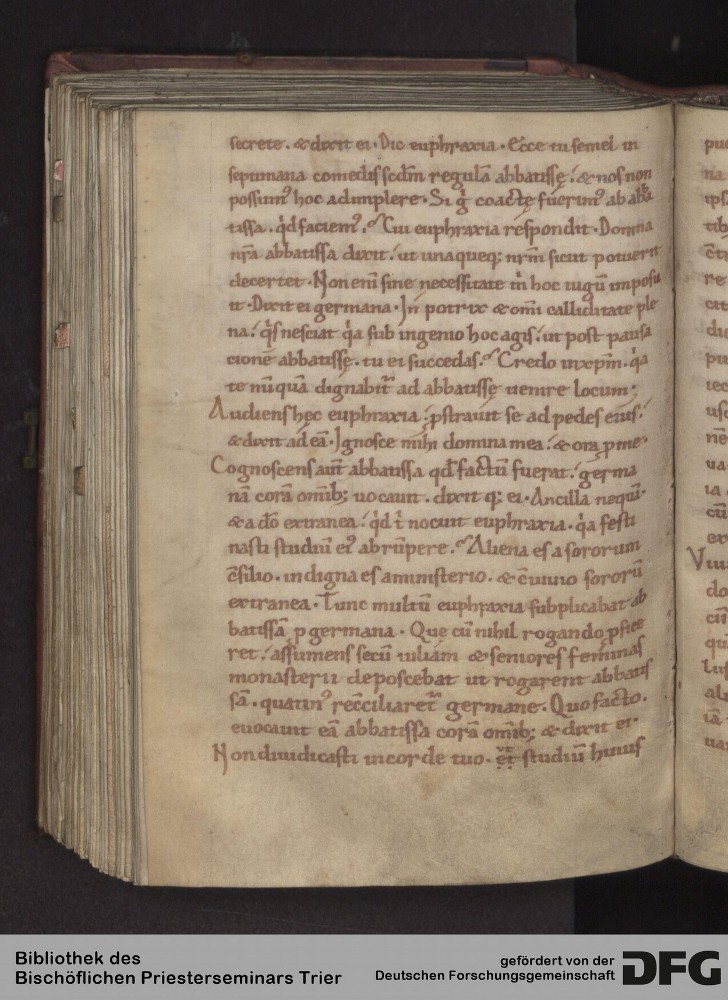 secrete. & dixit ei. Dic euphraxia. Ecce tu semel in
septimana comedis scdm regulā abbatissę. & nos non
possum' hoc adimplere. Si g coactę fuerim' ab abba
tissa. qd faciem'. Cui euphraxia respondit. Domina
nr̄a abbatissa dixit. ut unaqueq; nrm̄ sicut potuerit
decertet. Non eni sine necessitate in hoc iugū imposu
it. Dixit ei germana. In potrix & omi calliditate ple
na. qs nesciat qa sub ingenio hoc agis. ut post pausa
cionē abbatissę. tu ei succedas. Credo in xpm. qa
te nūquā dignabit ad abbatissę uenire locum;
Audiens hęc euphraxia. pstrauit se ad pedes eius.
& dixit ad eā. Ignosce mihi domina mea. & ora p me.
Cognoscens aut abbatissa qd factū fuerat. germa
nā corā omib; uocauit. dixit q; ei. Ancilla nequā.
& a do extranea. qd t nocuit euphraxia. qa festi
nasti studiū ei' abrūpere. Aliena es a sororum
c̄silio. indigna es a ministerio. & c̄uiuio sororū
extranea. Tunc multū euphraxia supplicabat ab
batissā p germana. Que cū nihil rogando pfice
ret. assumens secū iuliam & seniores feminas
monasterii deposcebat ut rogarent abbatis
sā. quatin' rec̄ciliaret germane. Quo facto.
euocauit eā abbatissa corā omib; & dixit ei.
Non diiudicasti in corde tuo. studiū huius
pu
na
ips
tib
re
cit
dic
pu
tec
usq
nē
ua
ia
cū
ex
Viu
do
cū
qu
lus
al
iā
ua
Bibliothek des
Bischöflichen Priesterseminars Trier
gefördert von der
Deutschen Forschungsgemeinschaft
DFG